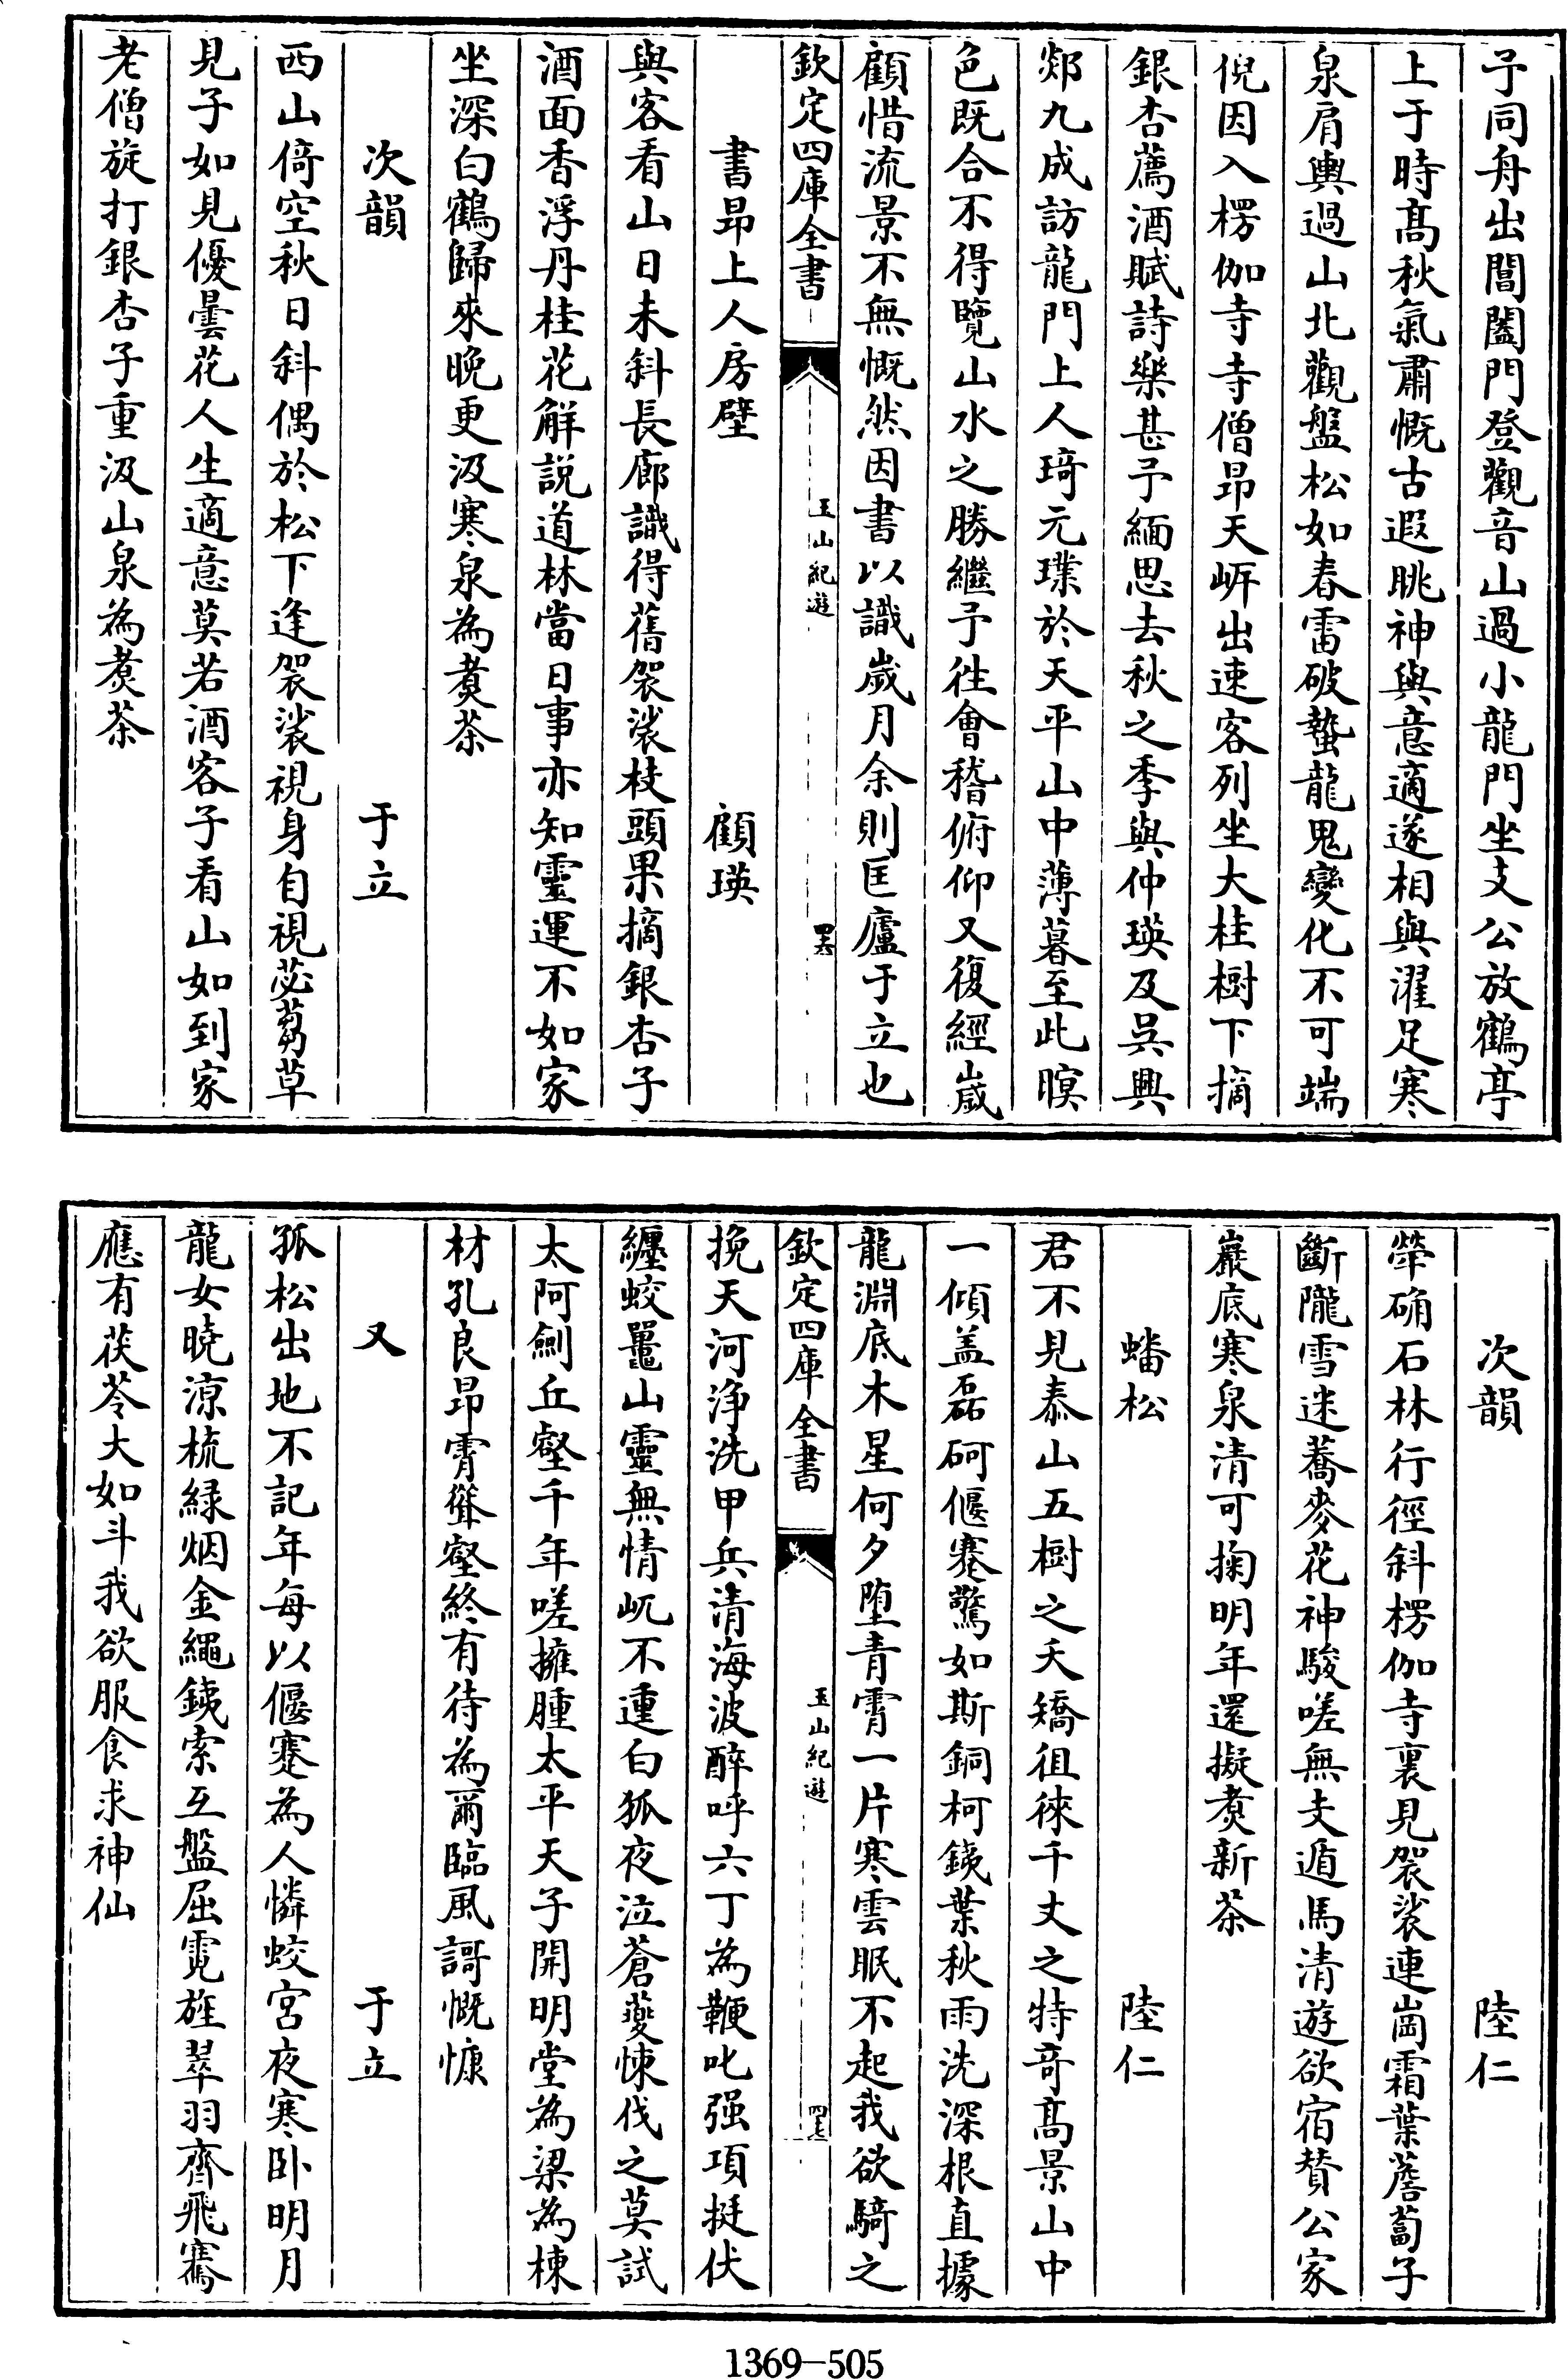 予同舟出閶闔門登觀音山過小龍門坐支公放鶴亭
上于時髙秋氣肅慨古遐眺神與意適遂相與濯足寒
泉肩輿過山北觀盤松如春雷破蟄龍鬼變化不可端
倪因入楞伽寺寺僧昻天岍出速客列坐大桂樹下摘
銀杏薦酒賦詩樂甚予緬思去秋之季與仲瑛及吳興
郯九成訪龍門上人琦元璞於天平山中薄暮至此暝
色既合不得覽山水之勝繼予徃會稽俯仰又復經歳
顧惜流景不無慨然因書以識歲月余則匡廬于立也
欽定四庫全書
玉山紀遊
四六
書昻上人房壁
顧瑛
與客看山日未斜長廊識得舊袈裟枝頭果摘銀杏子
酒面香浮丹桂花解説道林當日事亦知靈運不如家
坐深白鶴歸來晚更汲寒泉為煑茶
次韻
于立
西山倚空秋日斜偶於松下逢袈裟視身自視苾蒭草
見子如見優曇花人生適意莫若酒客子看山如到家
老僧旋打銀杏子重汲山泉為煑茶
次韻
陸仁
犖确石林行徑斜楞伽寺裏見袈裟連崗霜葉薝蔔子
斷隴雪迷蕎麥花神駿嗟無支遁馬清遊欲宿賛公家
巖底寒泉清可掬明年還擬煑新茶
蟠松
陸仁
君不見泰山五樹之夭矯徂徠千丈之特竒髙景山中
一傾盖磊砢偃蹇驚如斯銅柯鐵葉秋雨洗深根直據
龍淵底木星何夕堕青霄一片寒雲眠不起我欲騎之
欽定四庫全書
玉山紀遊
四七
挽天河浄洗甲兵清海波醉呼六丁為鞭叱强項挺伏
纒蛟鼉山靈無情屼不連白狐夜泣蒼夔悚伐之莫試
太阿劍丘壑千年嗟擁腫太平天子開明堂為梁為棟
材孔良昻霄聳壑終有待為爾臨風謌慨慷
又
于立
孤松出地不記年每以偃蹇為人憐蛟宮夜寒卧明月
龍女曉涼梳緑烟金繩鐵索互盤屈霓旌翠羽齊飛騫
應有茯苓大如斗我欲服食求神仙
1369—505